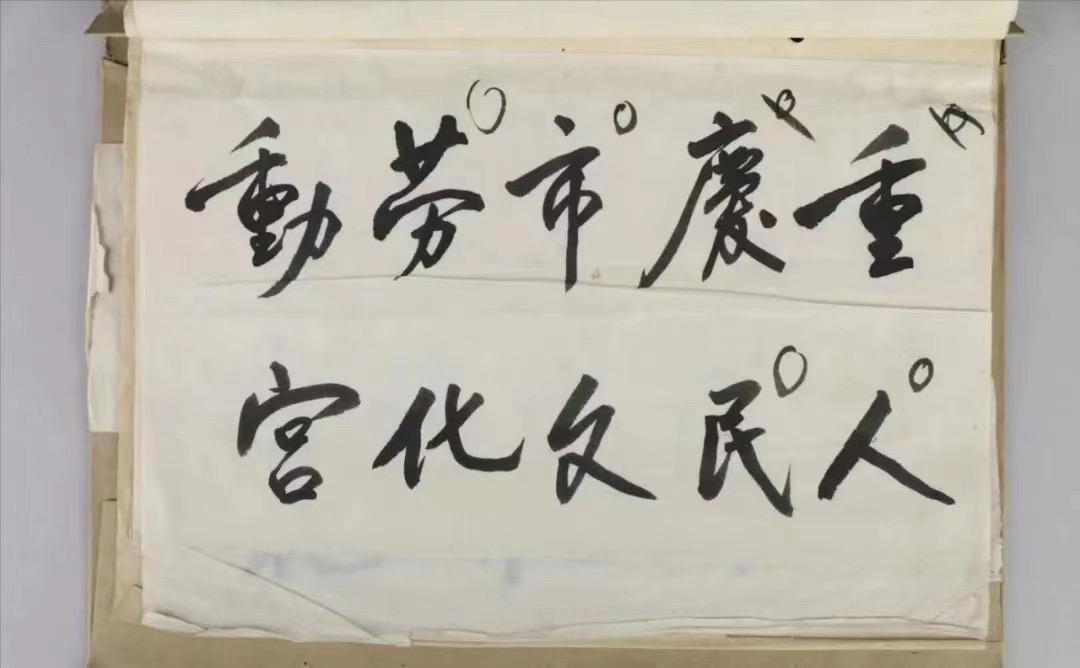 重慶市劳動
人民文化宮